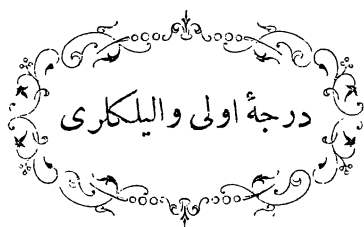 درجهٔ اولی والیلکلری